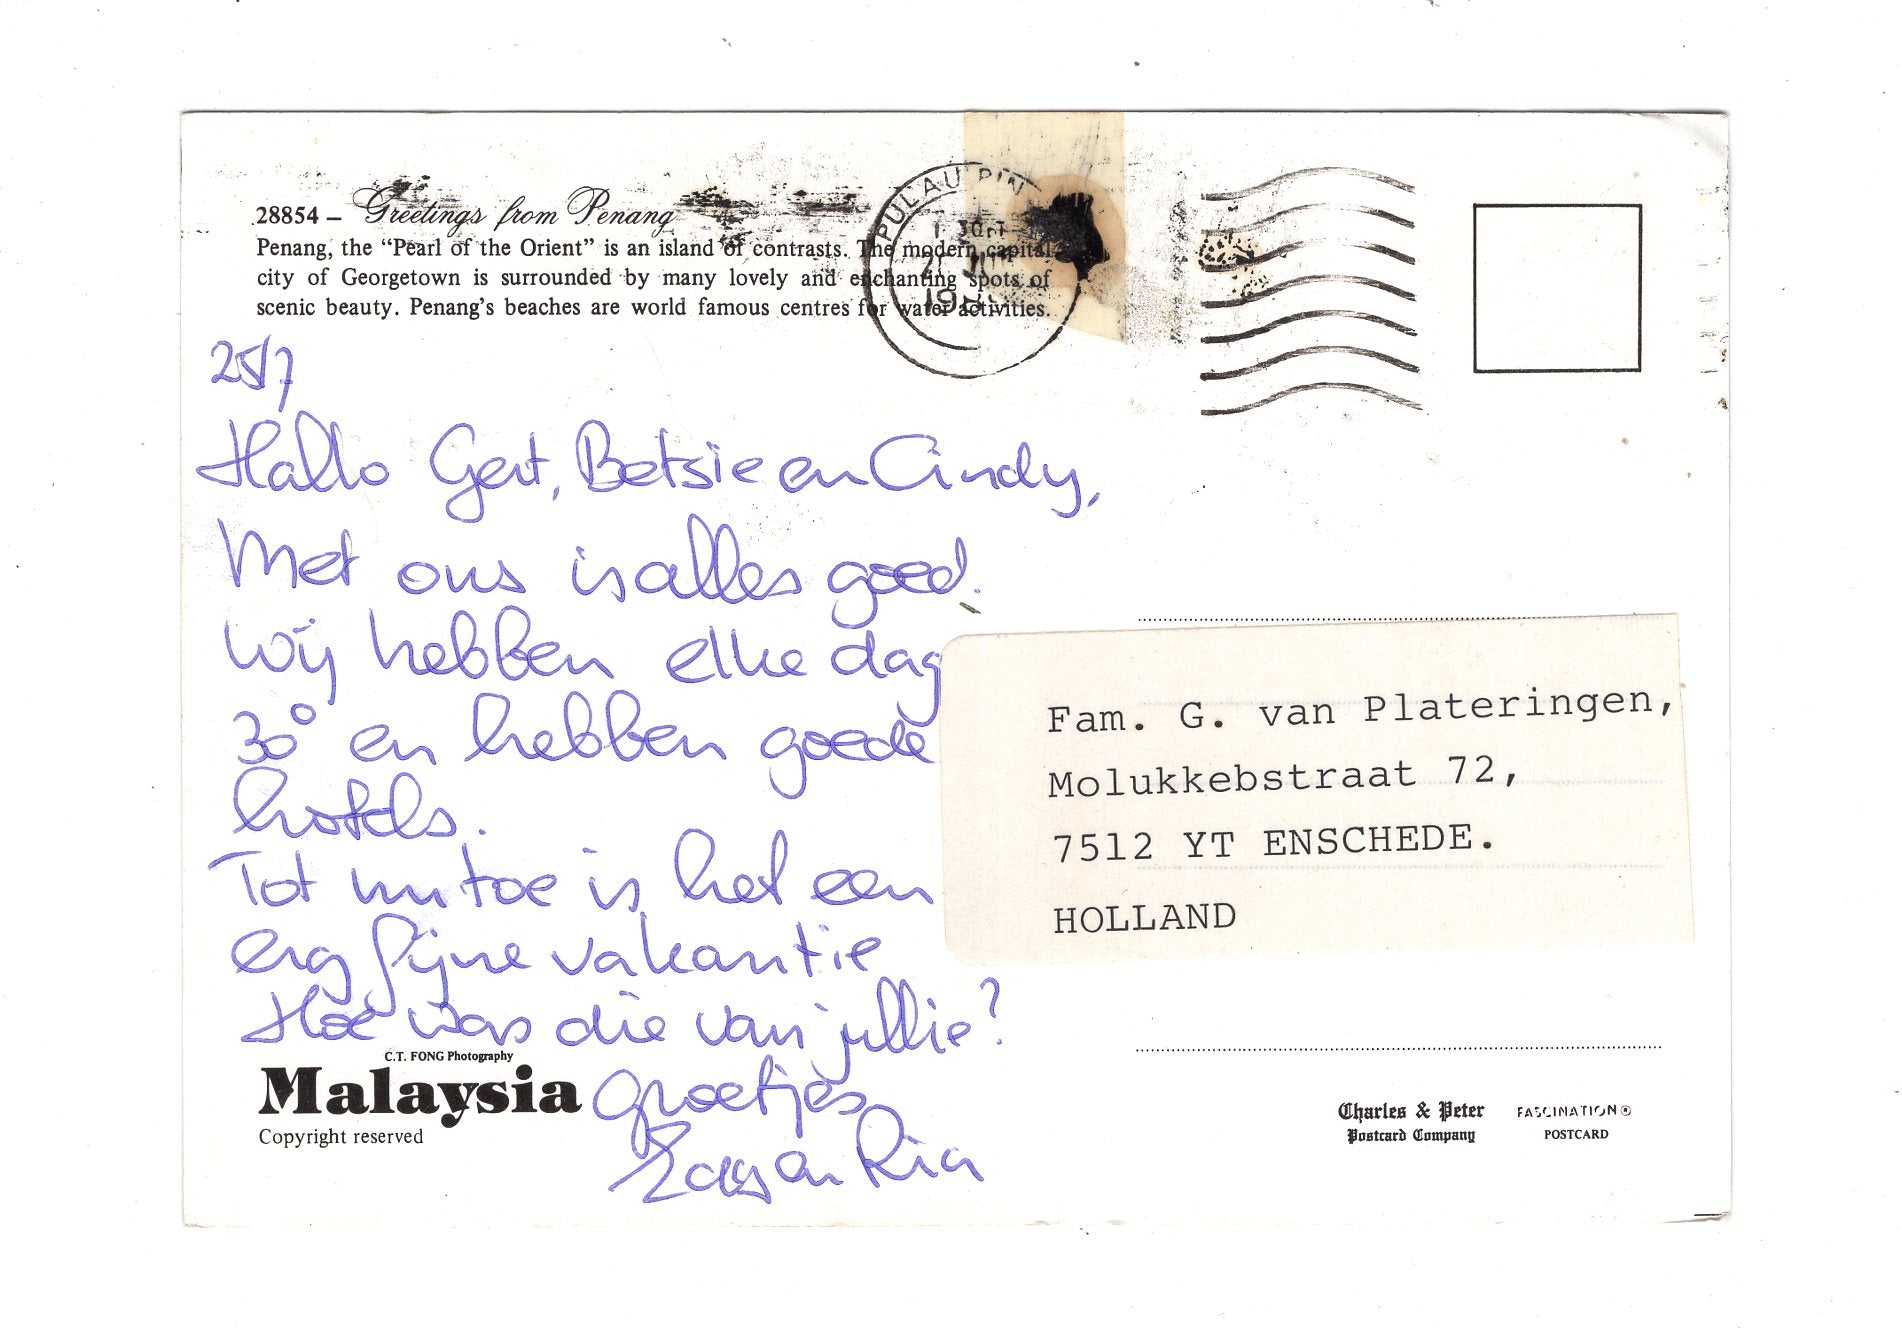 28854 – Greetings from Penang
Penang, the “Pearl of the Orient” is an island of contrasts. The modern capital
city of Georgetown is surrounded by many lovely and enchanting spots of
scenic beauty. Penang’s beaches are world famous centres for water activities.
PULAU PIN
25/7
Hallo Gert, Betsie en Cindy,
Met ons is alles goed.
Wij hebben elke dag
30° en hebben goede
hotels.
Tot nu toe is het een
erg fijne vakantie
Hoe was die van jullie?
groetjes
en Ria
C.T. FONG Photography
Malaysia
Copyright reserved
Fam. G. van Plateringen,
Molukkebstraat 72,
7512 YT ENSCHEDE.
HOLLAND
Charles & Peter
Postcard Company
FASCINATION®
POSTCARD